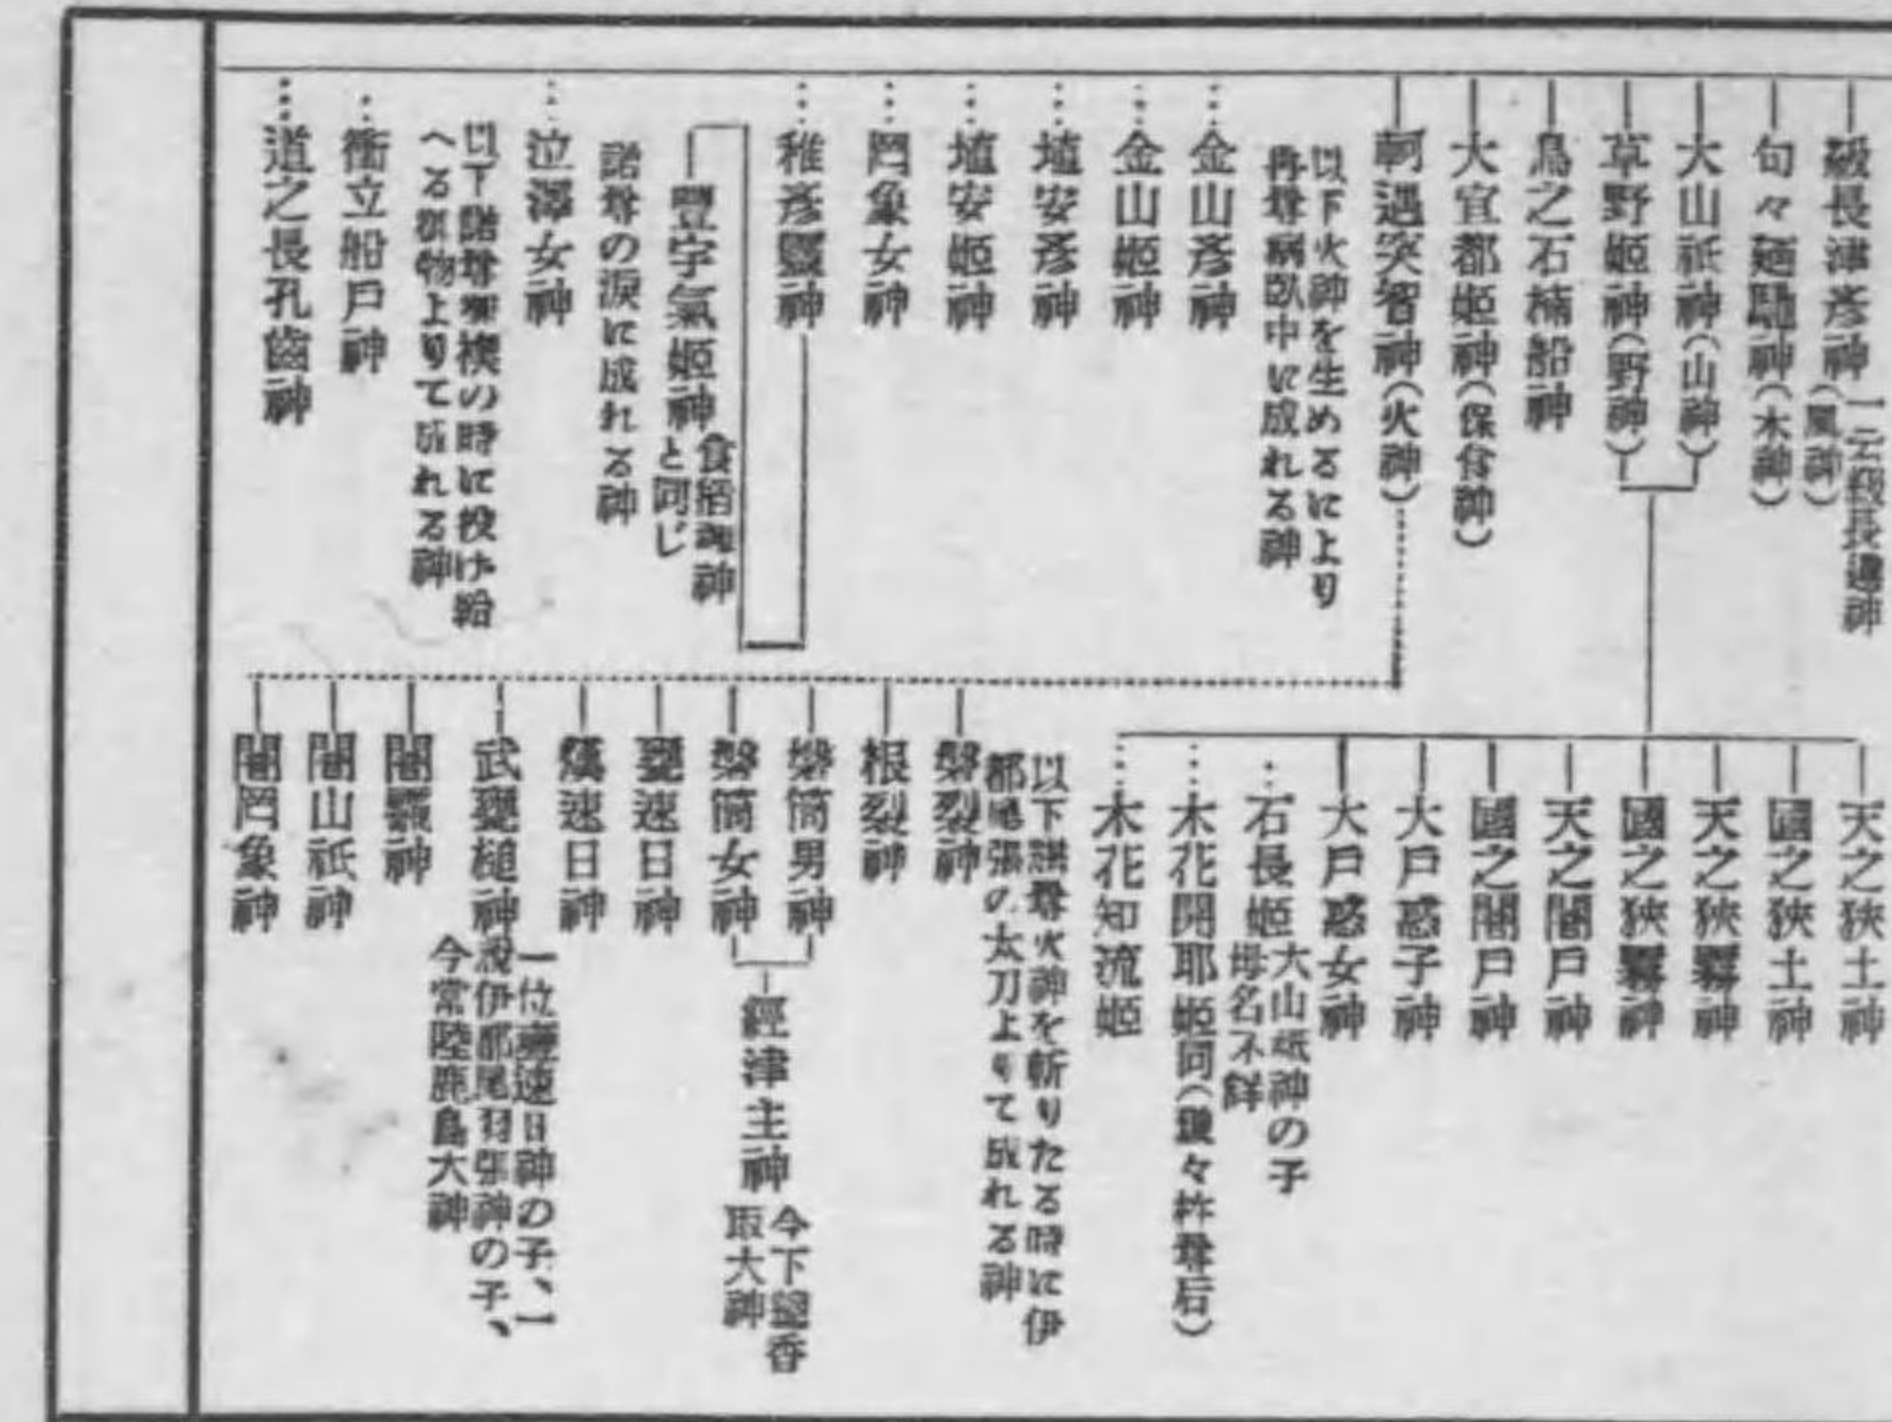 級長津彥神
一云級長邊神
(風神)
句々廼馳神(木神)
大山祇神(山神)
草野姬神(野神)
鳥之石楠船神
大宜都姬神(保食神)
軻遇突智神(火神)
以下火神を生めるにより
冉尊病臥中に成れる神
金山彥神
金山姬神
埴安彥神
埴安姬神
罔象女神
稚彥靈神
豐宇氣姬神
食稻魂神
と同じ
諾尊の淚に成れる神
泣澤女神
以下諾尊禊の時に投け給
へる物上りて成れる神
衝立船戶神
道之長孔齒神
天之狹土神
國之狹土神
天之狹霧神
國之狹霧神
天之闇戶神
國之闇戶神
大戶惑子神
大戶惑女神
石長姬
大山祇神の子
母名不詳
木花開耶姬同(瓊々杵尊后)
木花知流姬
以下諾尊火神を斬りたる時に伊
都尾張の太刀上りて成れる神
磐裂神
根裂神
磐筒男神
磐筒女神
經津主神
今下總香
取大神
甕速日神
熯速日神
武甕槌神
一位甕速日神の子、一
說伊都尾羽張神の子、
今常陸鹿島大神
闇龗神
闇山祇神
闇罔象神